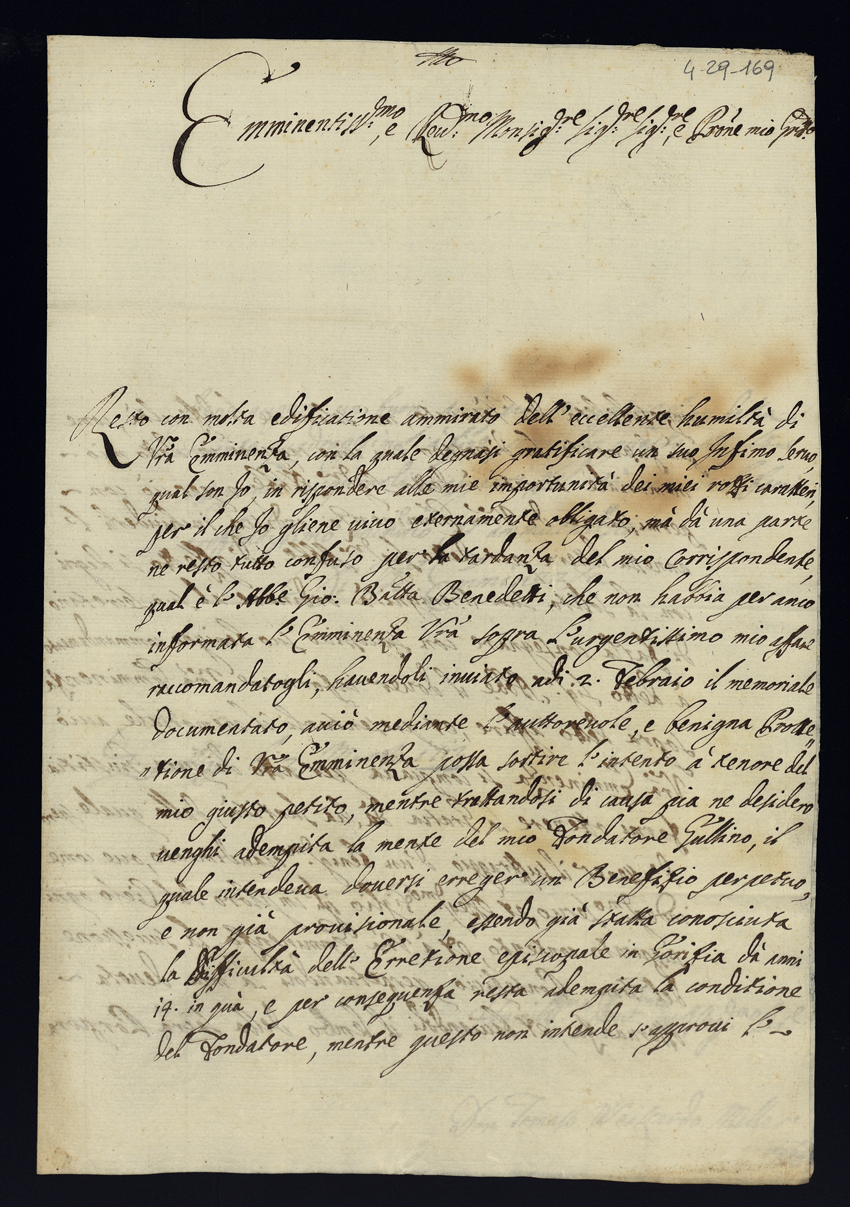 4-29-169
Emminentiss:mo, e Reu:mo Monsig:re Sig:re Sig:re, e Prone mio
Resto con molta edificatione ammirato dell'eccellente humiltà di
Vrã Emminenza, con la quale degnasi gratificare un suo Infimo seruo,
qual son Jo, in rispondere alle mie importunità dei miei rozzi caratteri,
per il che Jo gliene uiuo eternamente obligato, mà dà una parte
ne resto tutto confuso per la tardanza del mio Corrispondente,
qual è l'Abbe Gio: Batta Benedetti, che non habbia per anco
informata l'Emminenza Vrã sopra l'urgentissimo mio affare
raccomandatogli, hauendoli inuiato adi 2. Febraio il memoriale
documentato, acciò mediante l'auttoreuole, e benigna Prote„
„tione di Vrã Emminenza possa sortire l'intento à tenore del
mio giusto petito, mentre trattandosi di causa pia ne desidero
uenghi adempita la mente del mio Fondatore Gullino, il
quale intendeua douersi erreger un Benefizio perpetuo,
e non già prouisionale, essendo già statta conosciuta
la difficultà dell'Erretione episcopale in Gorizia dà anni
14. in quà, e per conseguenza resta adempita la conditione
del Fondatore, mentre questo non intende s'approui l'-